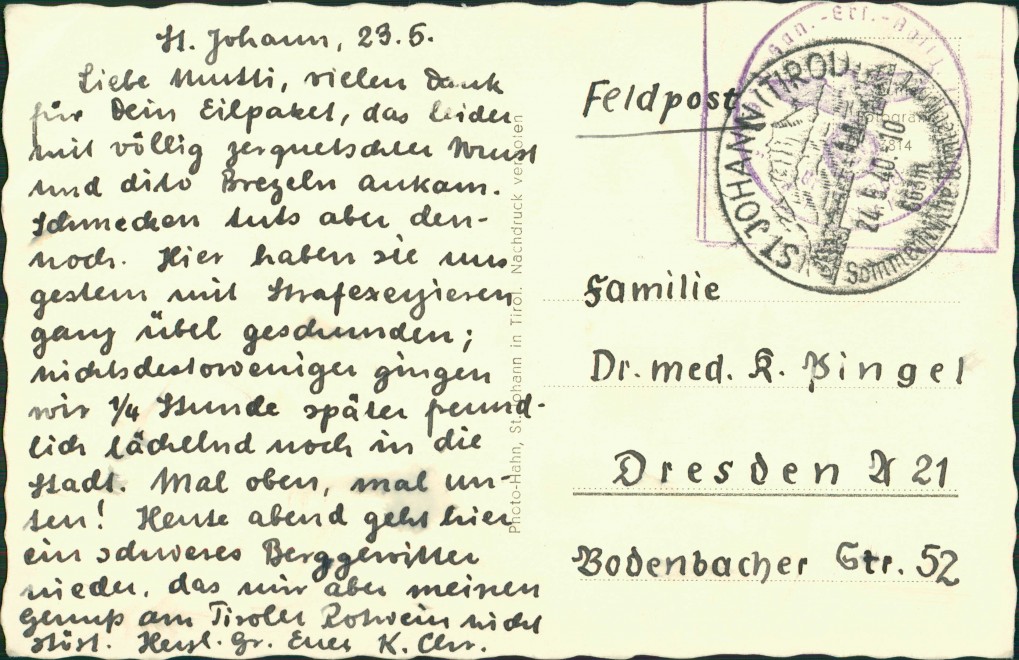 St. Johann, 23.6.
Liebe Mutti, vielen Dank
für Dein Eilpaket, das leider
mit völlig zerquetschter Wurst
und dito Brezeln ankam.
Schmecken tuts aber den-
noch. Hier haben sie uns
gestern mit Strafexerzieren
ganz übel geschunden;
nichtsdestoweniger gingen
wir 1/4 Stunde später freund-
lich lächelnd noch in die
Stadt. Mal oben, mal un-
ten! Heute abend geht hier
ein schweres Berggewitter
nieder, das mir aber meinen
Genuß am Tiroler Rotwein nicht
stört. Herzl. Gr. Euer K. Chr.
Photo-Hahn, St. Johann in Tirol. Nachdruck verboten
Feldpost
ST. JOHANN (TIROL)
24.6.40.10
663m
Familie
Dr. med. K. Pingel
Dresden A 21
Bodenbacher Str. 52